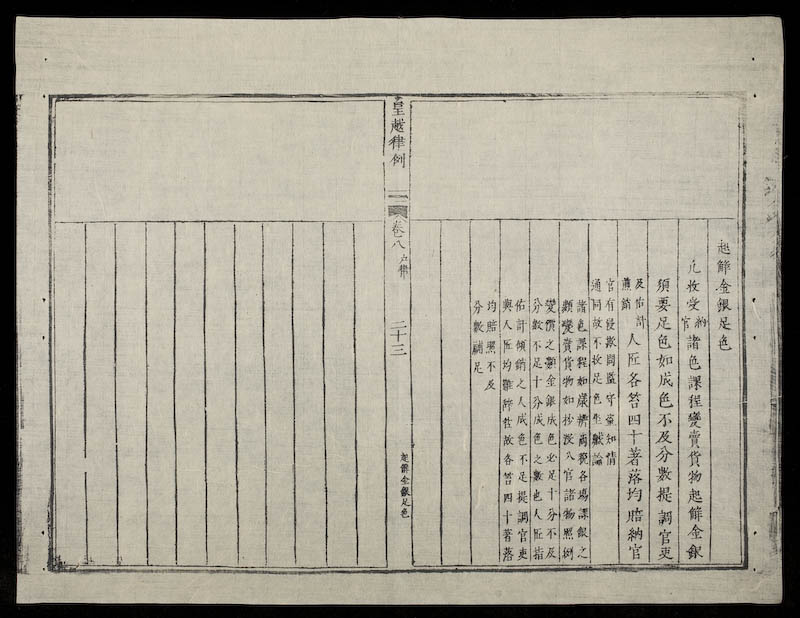 起觧金銀足色
凡收受納官諸色課程變賣貨物起觧金銀
須要足色如成色不及分數提調官吏
及估計煎銷人匠各笞四十著落均賠納官
官有侵欺問監守盜知情
通同故不收足色坐贓論
諸色課程如歲辦兩稅各場課銀之
類變賣貨物如抄沒入官諸物照例
變價之類金銀成色必足十分不及
分數不足十分成色之數也人匠指
估計傾銷之人成色不足提調官吏
與人匠均難辭咎故各笞四十著落
均賠照不及
分數補足
皇越律例
卷八 户律
二十三
起觧金銀足色